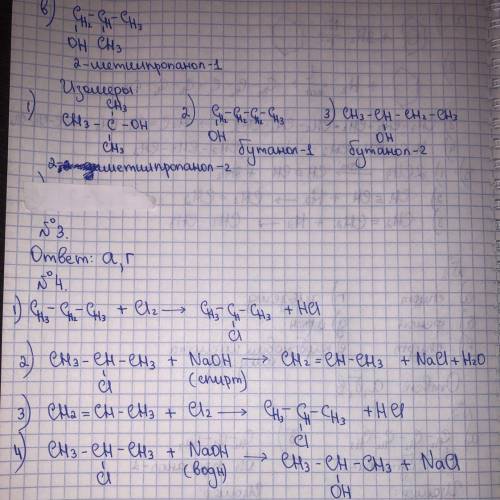 в) CH₂-CH-CH₃
OH CH₃
2-метилпропанол-1
Изомеры
CH₃
1) CH₃-C-OH 2) CH₂-CH₂-CH₂-CH₃ 3) CH₃-CH-CH₂-CH₃
CH₃ OH OH
2-метилпропанол-2 бутанол-1 бутанол-2
№3.
Ответ: а, г
№4.
1) CH₃-CH₂-CH₃ + Cl₂ → CH₃-CH-CH₃ + HCl
Cl
2) CH₃-CH-CH₃ + NaOH → CH₂=CH-CH₃ + NaCl+H₂O
Cl (спирт)
3) CH₂=CH-CH₃ + Cl₂ → CH₃-CH-CH₃ + HCl
Cl
4) CH₃-CH-CH₃ + NaOH → CH₃-CH-CH₃ + NaCl
Cl (водн) OH